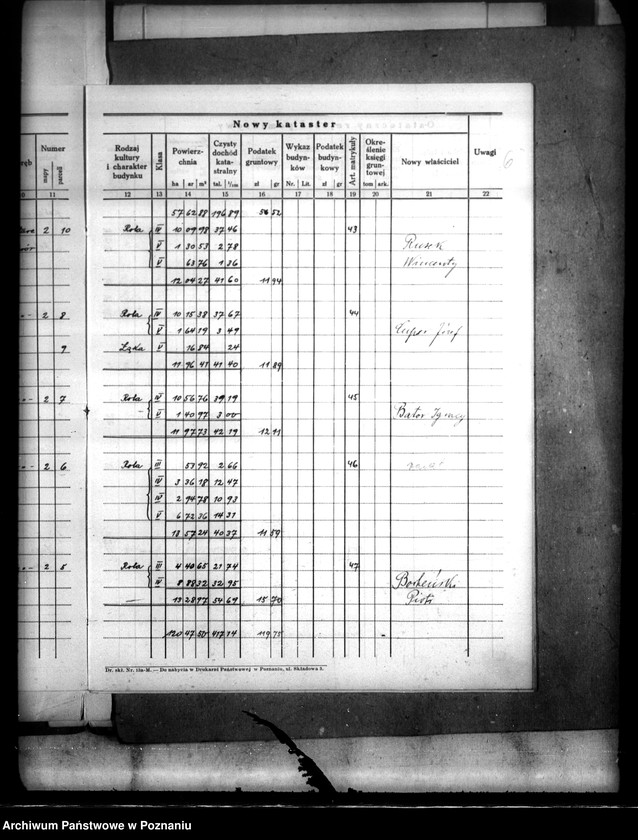 Nowy kataster
Numer
mapy parceli
11
Rodzaj kultury i charakter budynku
Klasa
Powierzchnia
ha ar m²
Czysty dochód katastralny
tal. ⁰/₀₀
Podatek gruntowy
zł gr
Wykaz budynków
Nr. Lit.
Podatek budynkowy
zł gr
Art. matrykuły
Określenie księgi gruntowej
tom ark.
Nowy właściciel
Uwagi
12 13 14 15 16 17 18 19 20 21 22
57 62 88 196 89 56 52
2 10 Rola IV 10 09 98 37 46 43
V 1 30 53 2 78 Rusek
V 63 76 1 36 Wincenty
12 04 27 41 60 11 94
2 8 Rola IV 10 15 38 37 67 44
V 1 64 19 3 49 Józef
9 Łąka V 16 84 24
11 96 41 41 40 11 89
2 7 Rola IV 10 56 76 39 19 45
V 1 40 97 3 00 Bator Ignacy
11 97 73 42 19 12 11
2 6 Rola III 53 92 2 66 46
IV 3 36 18 12 47
IV 2 94 78 10 93
V 6 72 36 14 31
13 57 24 40 37 11 59
2 5 Rola III 4 40 65 21 74 47
IV 8 88 32 32 95 Bocheński
13 28 97 54 69 15 70 Piotr
120 47 50 417 14 119 75
Dr. skł. Nr. 12a-M. — Do nabycia w Drukarni Państwowej w Poznaniu, ul. Składowa 3.
Archiwum Państwowe w Poznaniu